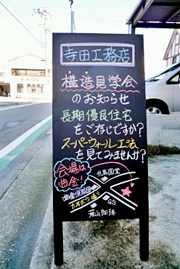 寺田工務店
構造見学会
のお知らせ
長期優良住宅
をご存じですか?
スーパーウォール工法
を見てみませんか?
会場は
歯舎!
GS